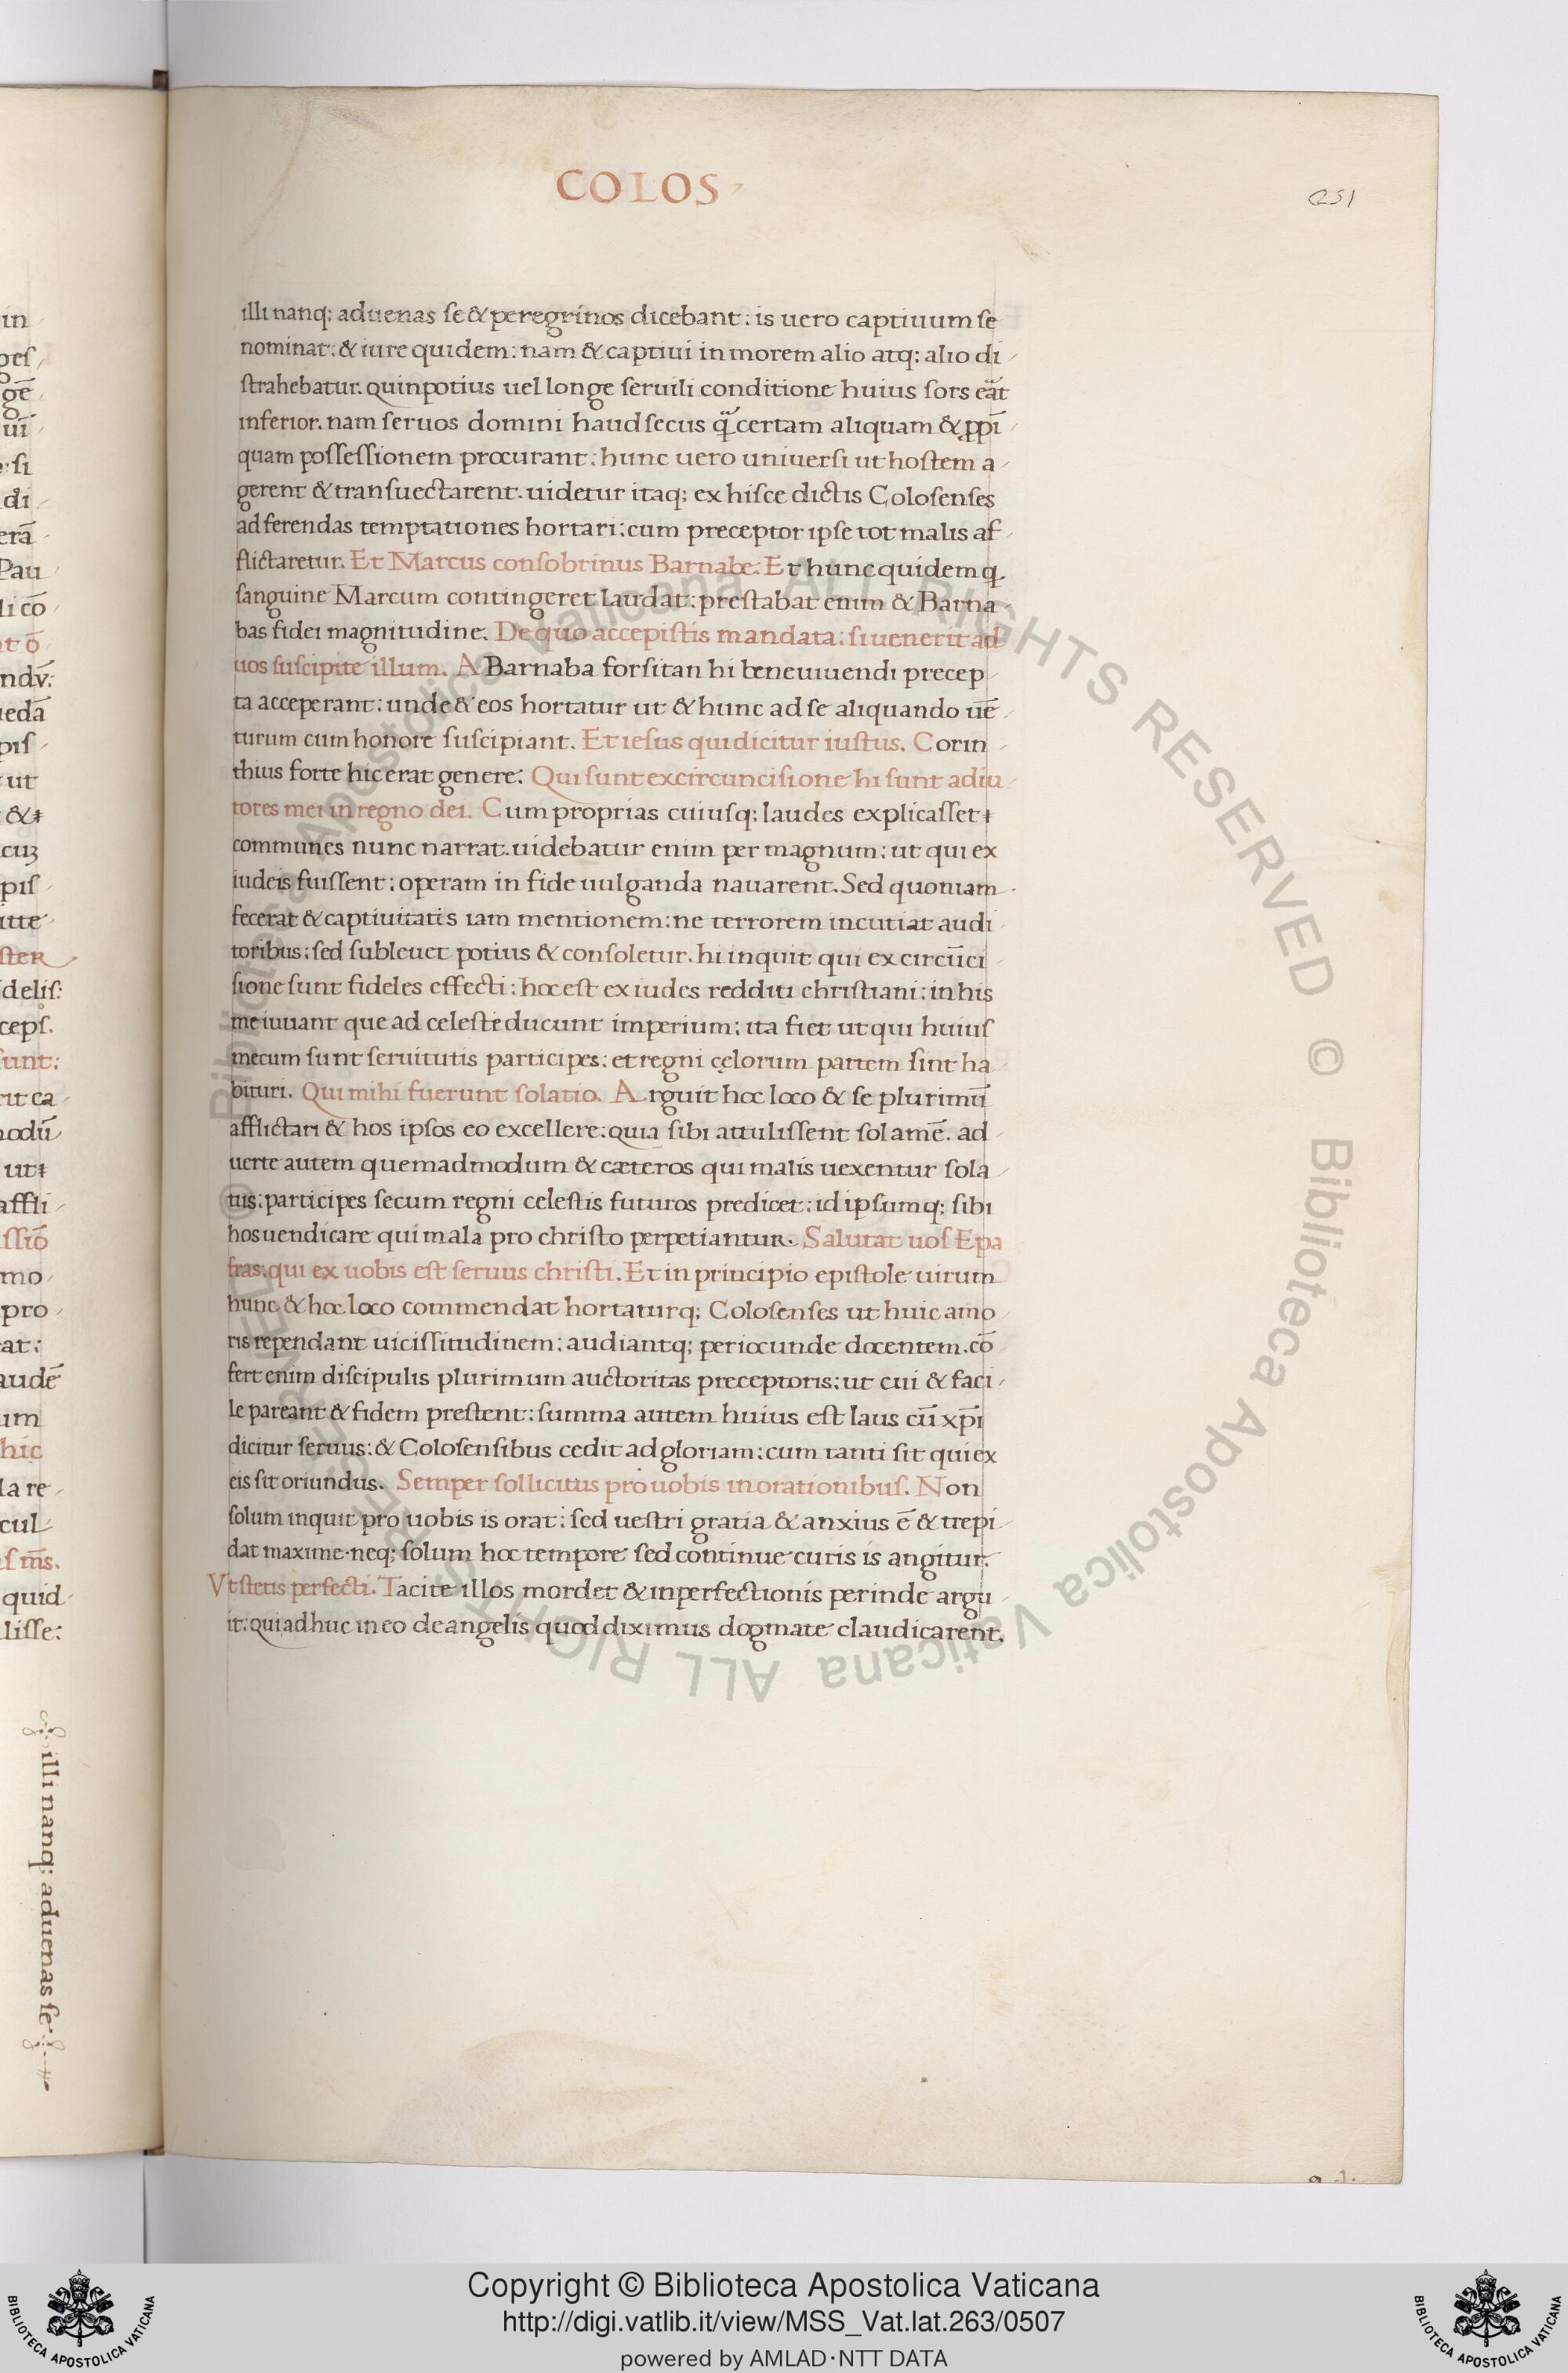 COLOS
251
illi nanq; aduenas ſe & peregrinos dicebant: is uero captiuum ſe
nominat: & iure quidem: nam & captiui in morem alio atq; alio di
ſtrahebatur. quinpotius uel longe ſeruili conditione huius ſors erat
inferior. nam ſeruos domini haud ſecus certam aliquam & ppī
quam poſſeſſionem procurant: hunc uero uniuerſi ut hoſtem a
gerent & tranſuectarent. uidetur itaq; ex hiſce dictis Coloſenſes
ad ferendas temptationes hortari: cum preceptor ipſe tot malis af
flictaretur. Et Marcus conſobrinus Barnabe. Et hunc quidem q
ſanguine Marcum contingeret laudat: preſtabat enim & Barna
bas fidei magnitudine. De quo accepiſtis mandata: ſi uenerit ad
uos ſuſcipite illum. A Barnaba forſitan hi bene uiuendi precep
ta acceperant: unde & eos hortatur ut & hunc ad ſe aliquando uē
turum cum honore ſuſcipiant. Et ieſus qui dicitur iuſtus. Corin
thius forte hic erat genere. Qui ſunt ex circunciſione hi ſunt adiu
tores mei in regno dei. Cum proprias cuiuſq; laudes explicaſſet
communes nunc narrat. uidebatur enim per magnum: ut qui ex
iudeis fuiſſent: operam in fide uulganda nauarent. Sed quoniam
fecerat & captiuitatis iam mentionem: ne terrorem incutiat audi
toribus: ſed ſubleuet potius & conſoletur. hi inquit qui ex circūci
ſione ſunt fideles effecti: hoc eſt ex iudes redditi chriſtiani: in his
me iuuant que ad celeſte ducunt imperium: ita fiet ut qui huiuſ
mecum ſunt ſeruitutis participes: et regni cęlorum partem ſint ha
bituri. Qui mihi fuerunt ſolatio. Arguit hoc loco & ſe plurimū
afflictari & hos ipſos eo excellere: quia ſibi attuliſſent ſolamē. ad
uerte autem quemadmodum & cæteros qui malis uexentur ſola
tus: participes ſecum regni celeſtis futuros predicet: id ipſumq; ſibi
hos uendicare qui mala pro chriſto perpetiantur. Salutat uoſ Epa
fras. qui ex uobis eſt ſeruus chriſti. Et in principio epiſtole uirum
hunc & hoc loco commendat hortaturq; Coloſenſes ut huic amo
ris rependant uiciſſitudinem: audiantq; periocunde docentem. cō
fert enim diſcipulis plurimum auctoritas preceptoris: ut cui & faci
le pareant & fidem preſtent: ſumma autem huius eſt laus cū xp̄i
dicitur ſeruus: & Coloſenſibus cedit ad gloriam: cum tanti ſit qui ex
eis ſit oriundus. Semper ſollicitus pro uobis in orationibuſ. Non
ſolum inquit pro uobis is orat: ſed ueſtri gratia & anxius ē & trepi
dat maxime. neq; ſolum hoc tempore ſed continue curis is angitur.
Vt ſtetis perfecti. Tacite illos mordet & inperfectionis perinde argu
it: qui adhuc in eo de angelis quod diximus dogmate claudicarent.
illi nanq; aduenas ſe
Copyright © Biblioteca Apostolica Vaticana
http://digi.vatlib.it/view/MSS_Vat.lat.263/0507
powered by AMLAD·NTT DATA
BIBLIOTECA APOSTOLICA VATICANA
BIBLIOTECA APOSTOLICA VATICANA
© Biblioteca Apostolica Vaticana ALL RIGHTS RESERVED © Biblioteca Apostolica Vaticana ALL RIGHTS RESERVED